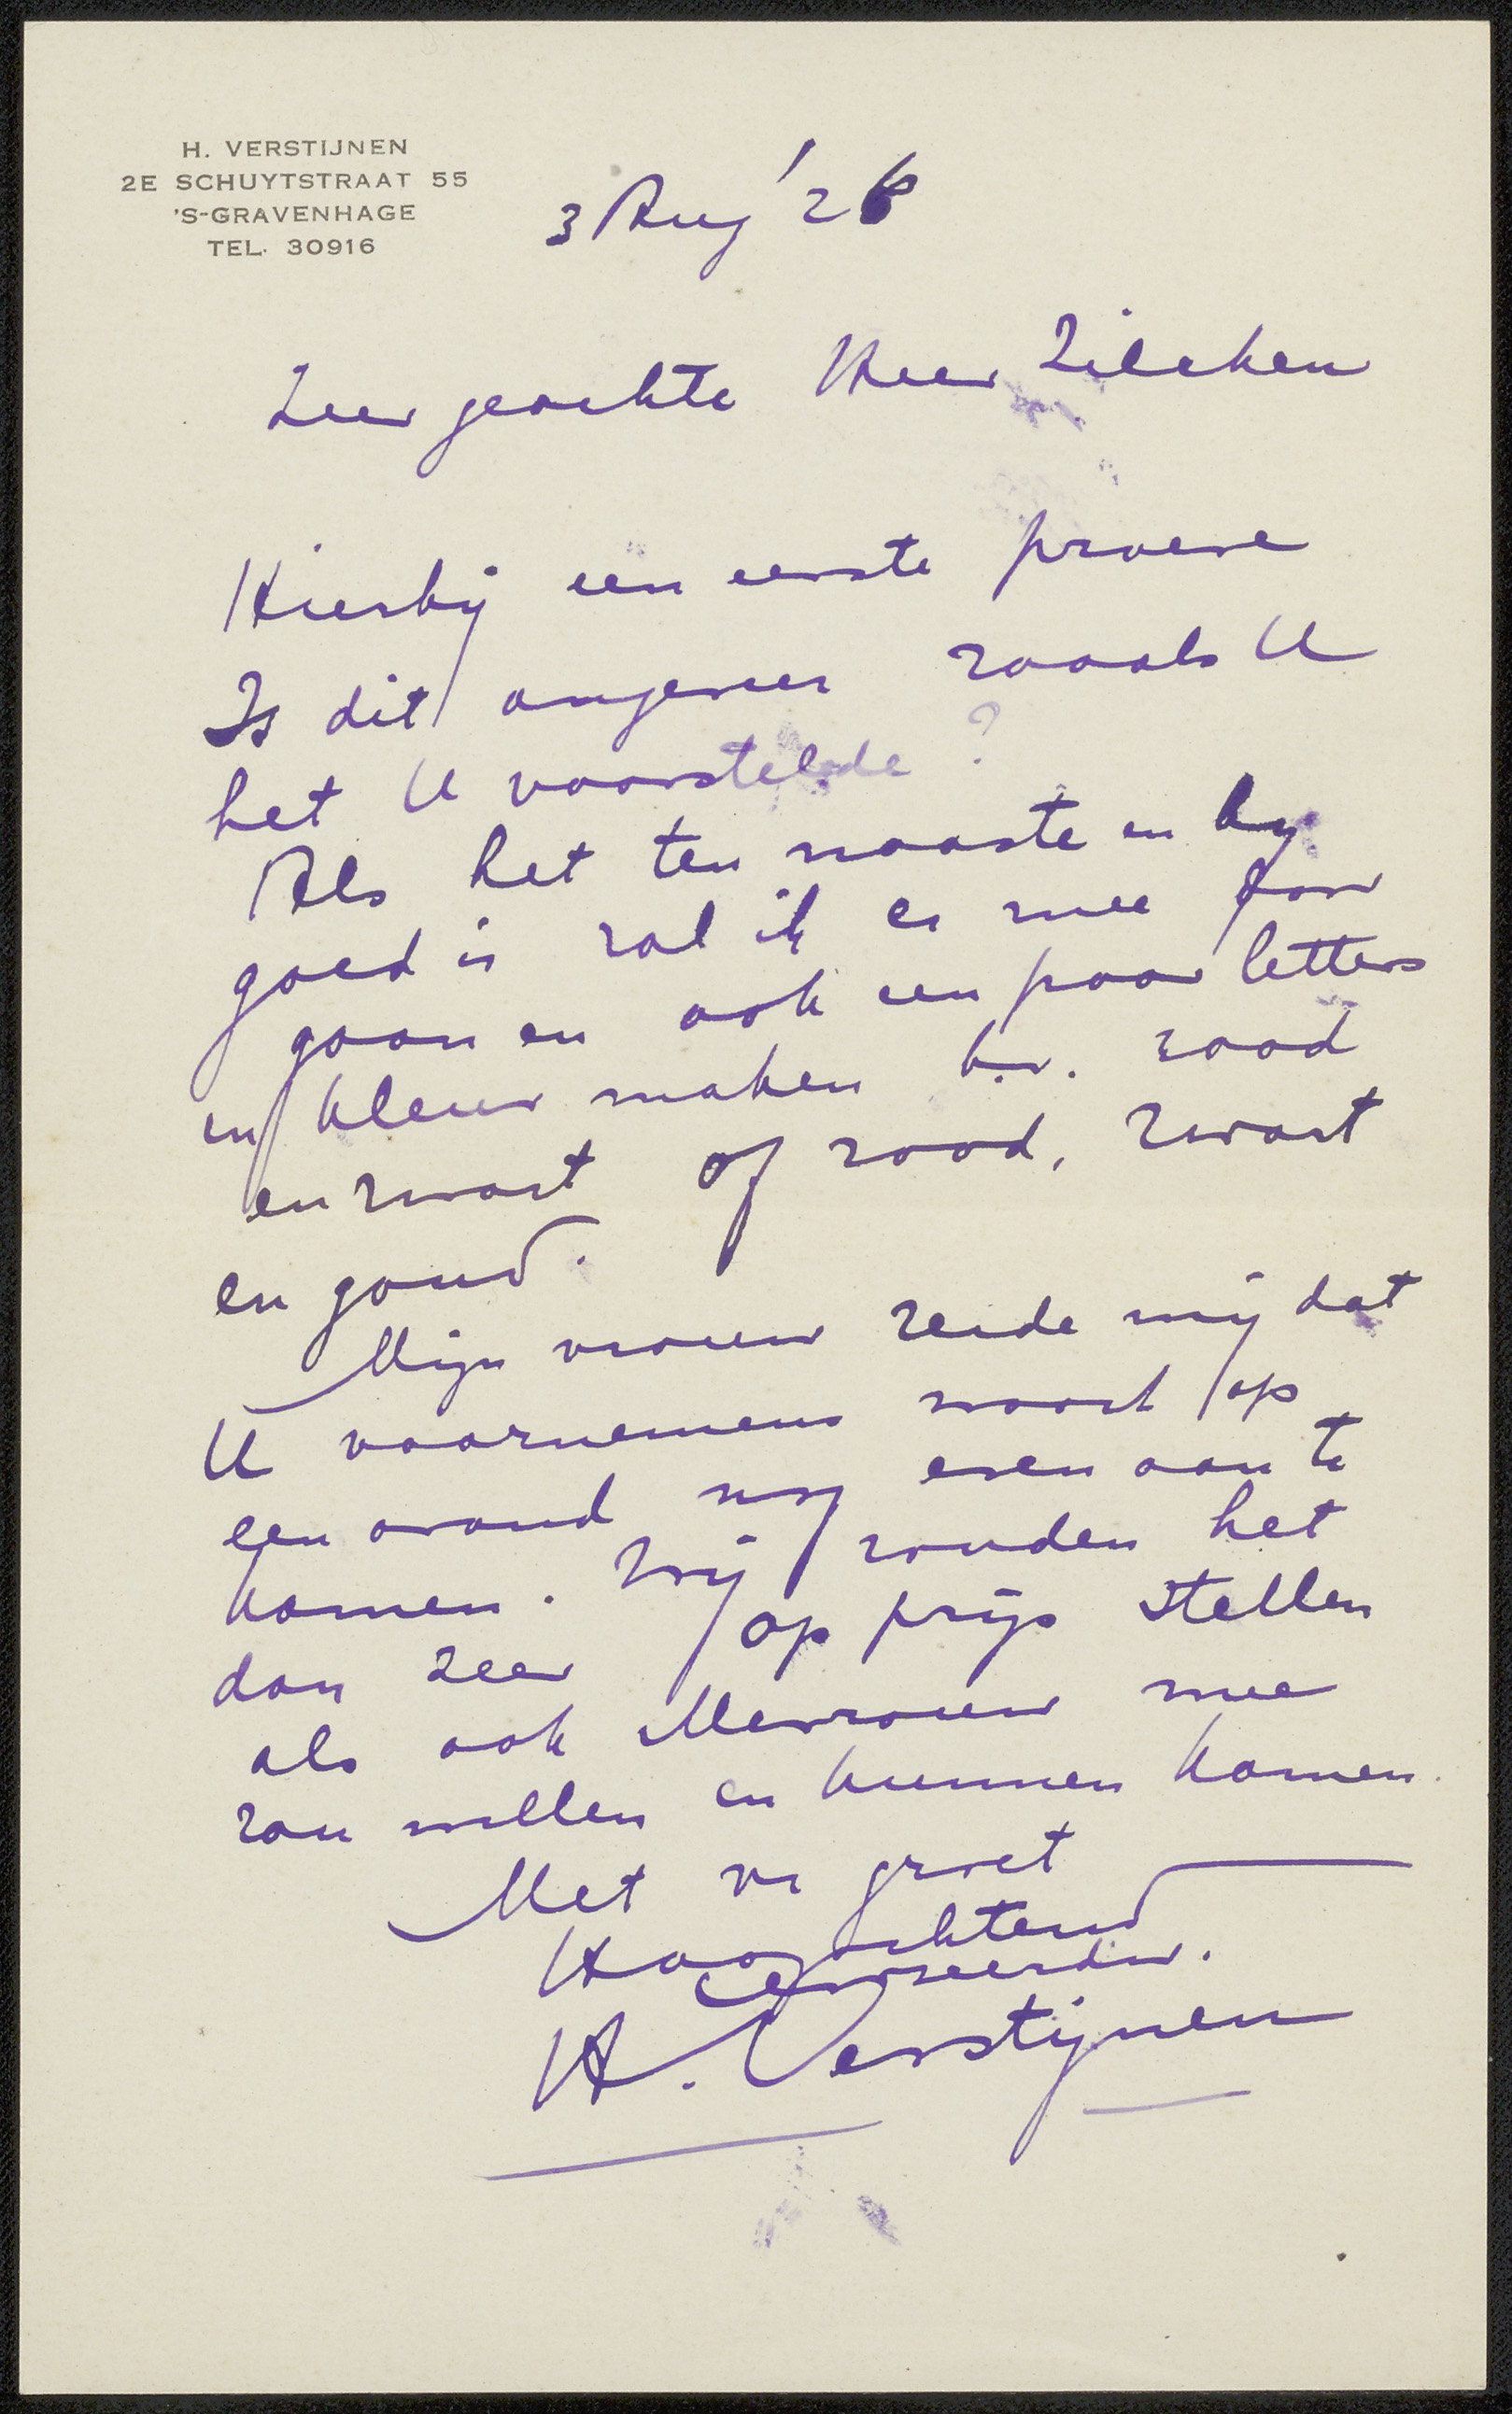 H. VERSTIJNEN
2E SCHUYTSTRAAT 55
'S-GRAVENHAGE
TEL. 30916
3 Aug '26
Zeer geachte Heer Zilcken
Hierbij een eerste proeve
Is dit ongeveer zooals U
het U voorstelde ?
Als het ten naaste en by
goed is zal ik er mee door
gaan en ook een paar letters
in kleur maken b.v. rood
en zwart of rood, zwart
en goud.
Mijn vrouw zeide mij dat
U voornemens waart op
een avond nog even aan te
komen. Wij zouden het
dan zeer op prijs stellen
als ook Mevrouw mee
zou willen en kunnen komen.
Met vr groet
Hoogachtend
H. Verstijnen